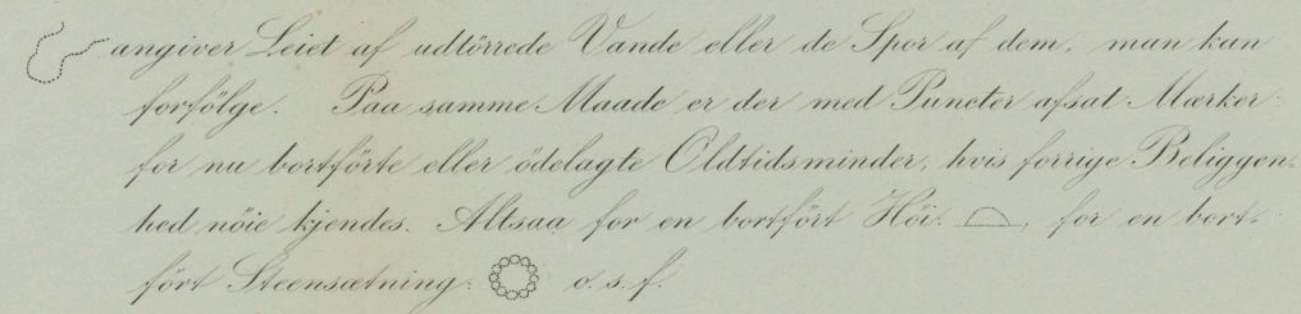 angiver Leiet af udtörrede Vande eller de Spor af dem, man kan
forfölge. Paa samme Maade er der med Puncter afsat Mærker
for nu bortförte eller ödelagte Oldtidsminder, hvis forrige Beliggen-
hed nöie kjendes. Altsaa for en bortfört Höi: , for en bort-
fört Steensætning: o. s. f.